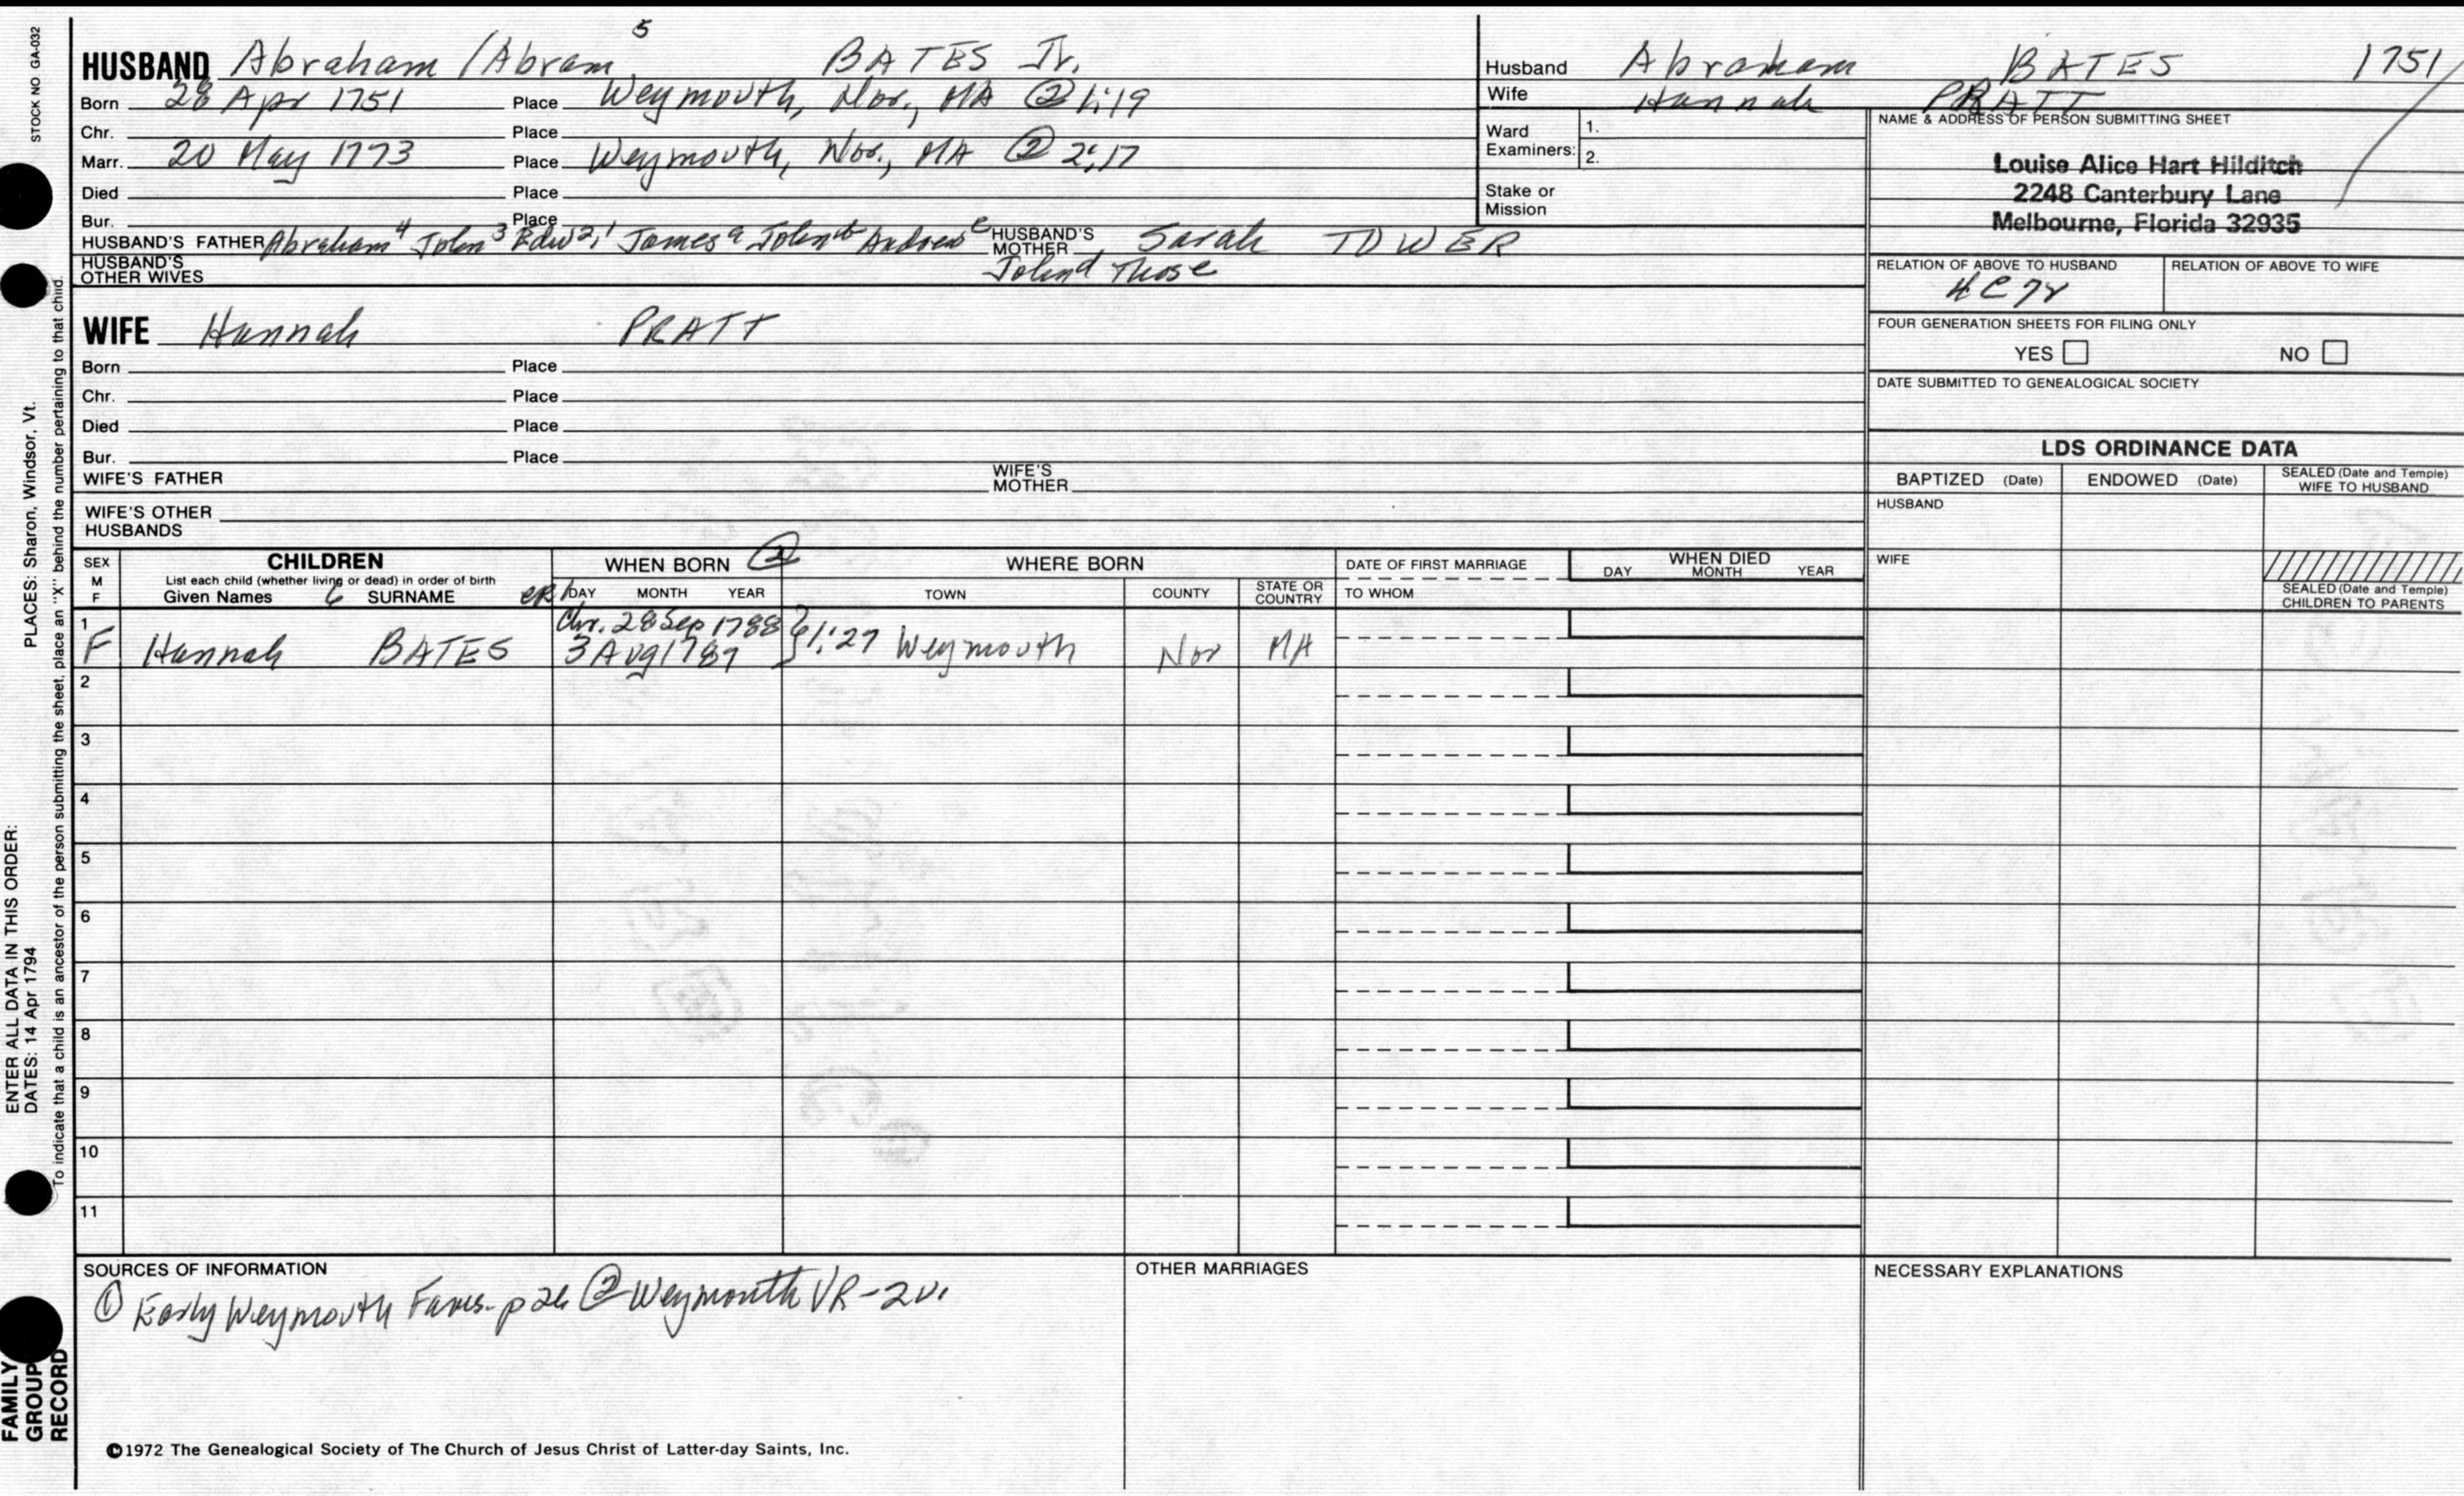 STOCK NO GA-032
HUSBAND Abraham /Abram 5 BATES Jr.
Born 28 Apr 1751 Place Weymouth, Nor., MA ② 1:19
Chr. Place
Marr. 20 May 1773 Place Weymouth, Nor., MA ② 2:17
Died Place
Bur. Place
HUSBAND'S FATHER Abraham 4 John 3 Edw 2,1 James a John b Andrew c HUSBAND'S MOTHER Sarah TOWER
HUSBAND'S OTHER WIVES John d Thos e
Husband Abraham BATES 1751
Wife Hannah PRATT
Ward Examiners: 1.
2.
Stake or Mission
NAME & ADDRESS OF PERSON SUBMITTING SHEET
Louise Alice Hart Hilditch
2248 Canterbury Lane
Melbourne, Florida 32935
RELATION OF ABOVE TO HUSBAND RELATION OF ABOVE TO WIFE
4C7r
FOUR GENERATION SHEETS FOR FILING ONLY
YES NO
DATE SUBMITTED TO GENEALOGICAL SOCIETY
WIFE Hannah PRATT
Born Place
Chr. Place
Died Place
Bur. Place
WIFE'S FATHER WIFE'S MOTHER
WIFE'S OTHER HUSBANDS
LDS ORDINANCE DATA
BAPTIZED (Date) ENDOWED (Date) SEALED (Date and Temple) WIFE TO HUSBAND
HUSBAND
WIFE
SEALED (Date and Temple) CHILDREN TO PARENTS
SEX M F
CHILDREN
List each child (whether living or dead) in order of birth
Given Names 6 SURNAME
WHEN BORN ②
DAY MONTH YEAR
WHERE BORN
TOWN COUNTY STATE OR COUNTRY
DATE OF FIRST MARRIAGE
TO WHOM
WHEN DIED
DAY MONTH YEAR
1 Chr. 28 Sep 1788
F Hannah BATES 3 Aug 1787 } 1:27 Weymouth Nor MA
2
3
4
5
6
7
8
9
10
11
SOURCES OF INFORMATION
① Early Weymouth Fams. p 26 ② Weymouth VR-2v.
OTHER MARRIAGES
NECESSARY EXPLANATIONS
©1972 The Genealogical Society of The Church of Jesus Christ of Latter-day Saints, Inc.
ENTER ALL DATA IN THIS ORDER:
DATES: 14 Apr 1794 PLACES: Sharon, Windsor, Vt.
To indicate that a child is an ancestor of the person submitting the sheet, place an "X" behind the number pertaining to that child.
FAMILY GROUP RECORD